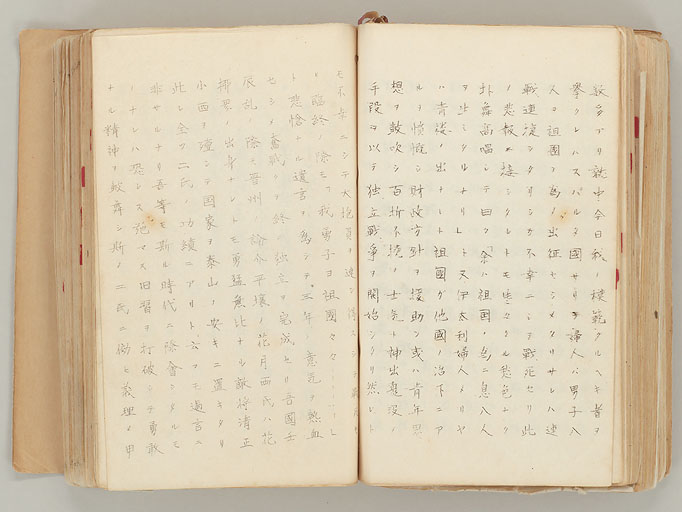 数多アリ就中今日我ノ模範タルヘキ者ヲ
挙クレハスパルタ國サリヲ婦人ハ男子八
人ヲ祖國ノ為ノ出征セシメタリサレハ連
戦連捷シタリシガ不幸ニシテ戦死セリ此
ノ悲報ニ接シタレトモ生々タル悲色ナク
抃舞高唱シテ曰ク余ハ祖國ノ為ニ息八人
ヲ生ミタルナリト又伊太利婦人メリヤ
ハ青徒ノ出ナレト祖國ガ他國ノ治下ニア
ルヲ憤慨シ財政方針ヲ援助シ或ハ青年思
想ヲ鼓吹シ百折不撓ノ士気ト神出鬼没ノ
手段ヲ以テ独立戦争ヲ開始シタリ然レト
モ不幸ニシテ大抱負ヲ達シ得スシテ
ノ臨終ノ際モ我勇子ヨ祖國々々……レ
ト悲愴ナル遺言ヲ為シテ三年ノ意気ト熱血
セシメ奮戦シテ終ノ独立ヲ完成セリ吾國壬
辰乱ノ際モ晋州ノ論介平壤ノ花月両氏ハ花
柳界ノ出身ナレトモ勇猛無比ナル敵将清正
小西ヲ壇シテ國家ヲ泰山ノ安キニ置キタリ
此レ全ク二氏ノ功績ニアリト云フモ過言ニ
非サルナリ吾等モ斯ル時代ニ際會シタルモ
ノナレハ恐レス
旧習ヲ打破シテ勇敢
ナル精神ヲ鼓舞シ斯ノ二氏ニ倣ヒ義理ヲ申